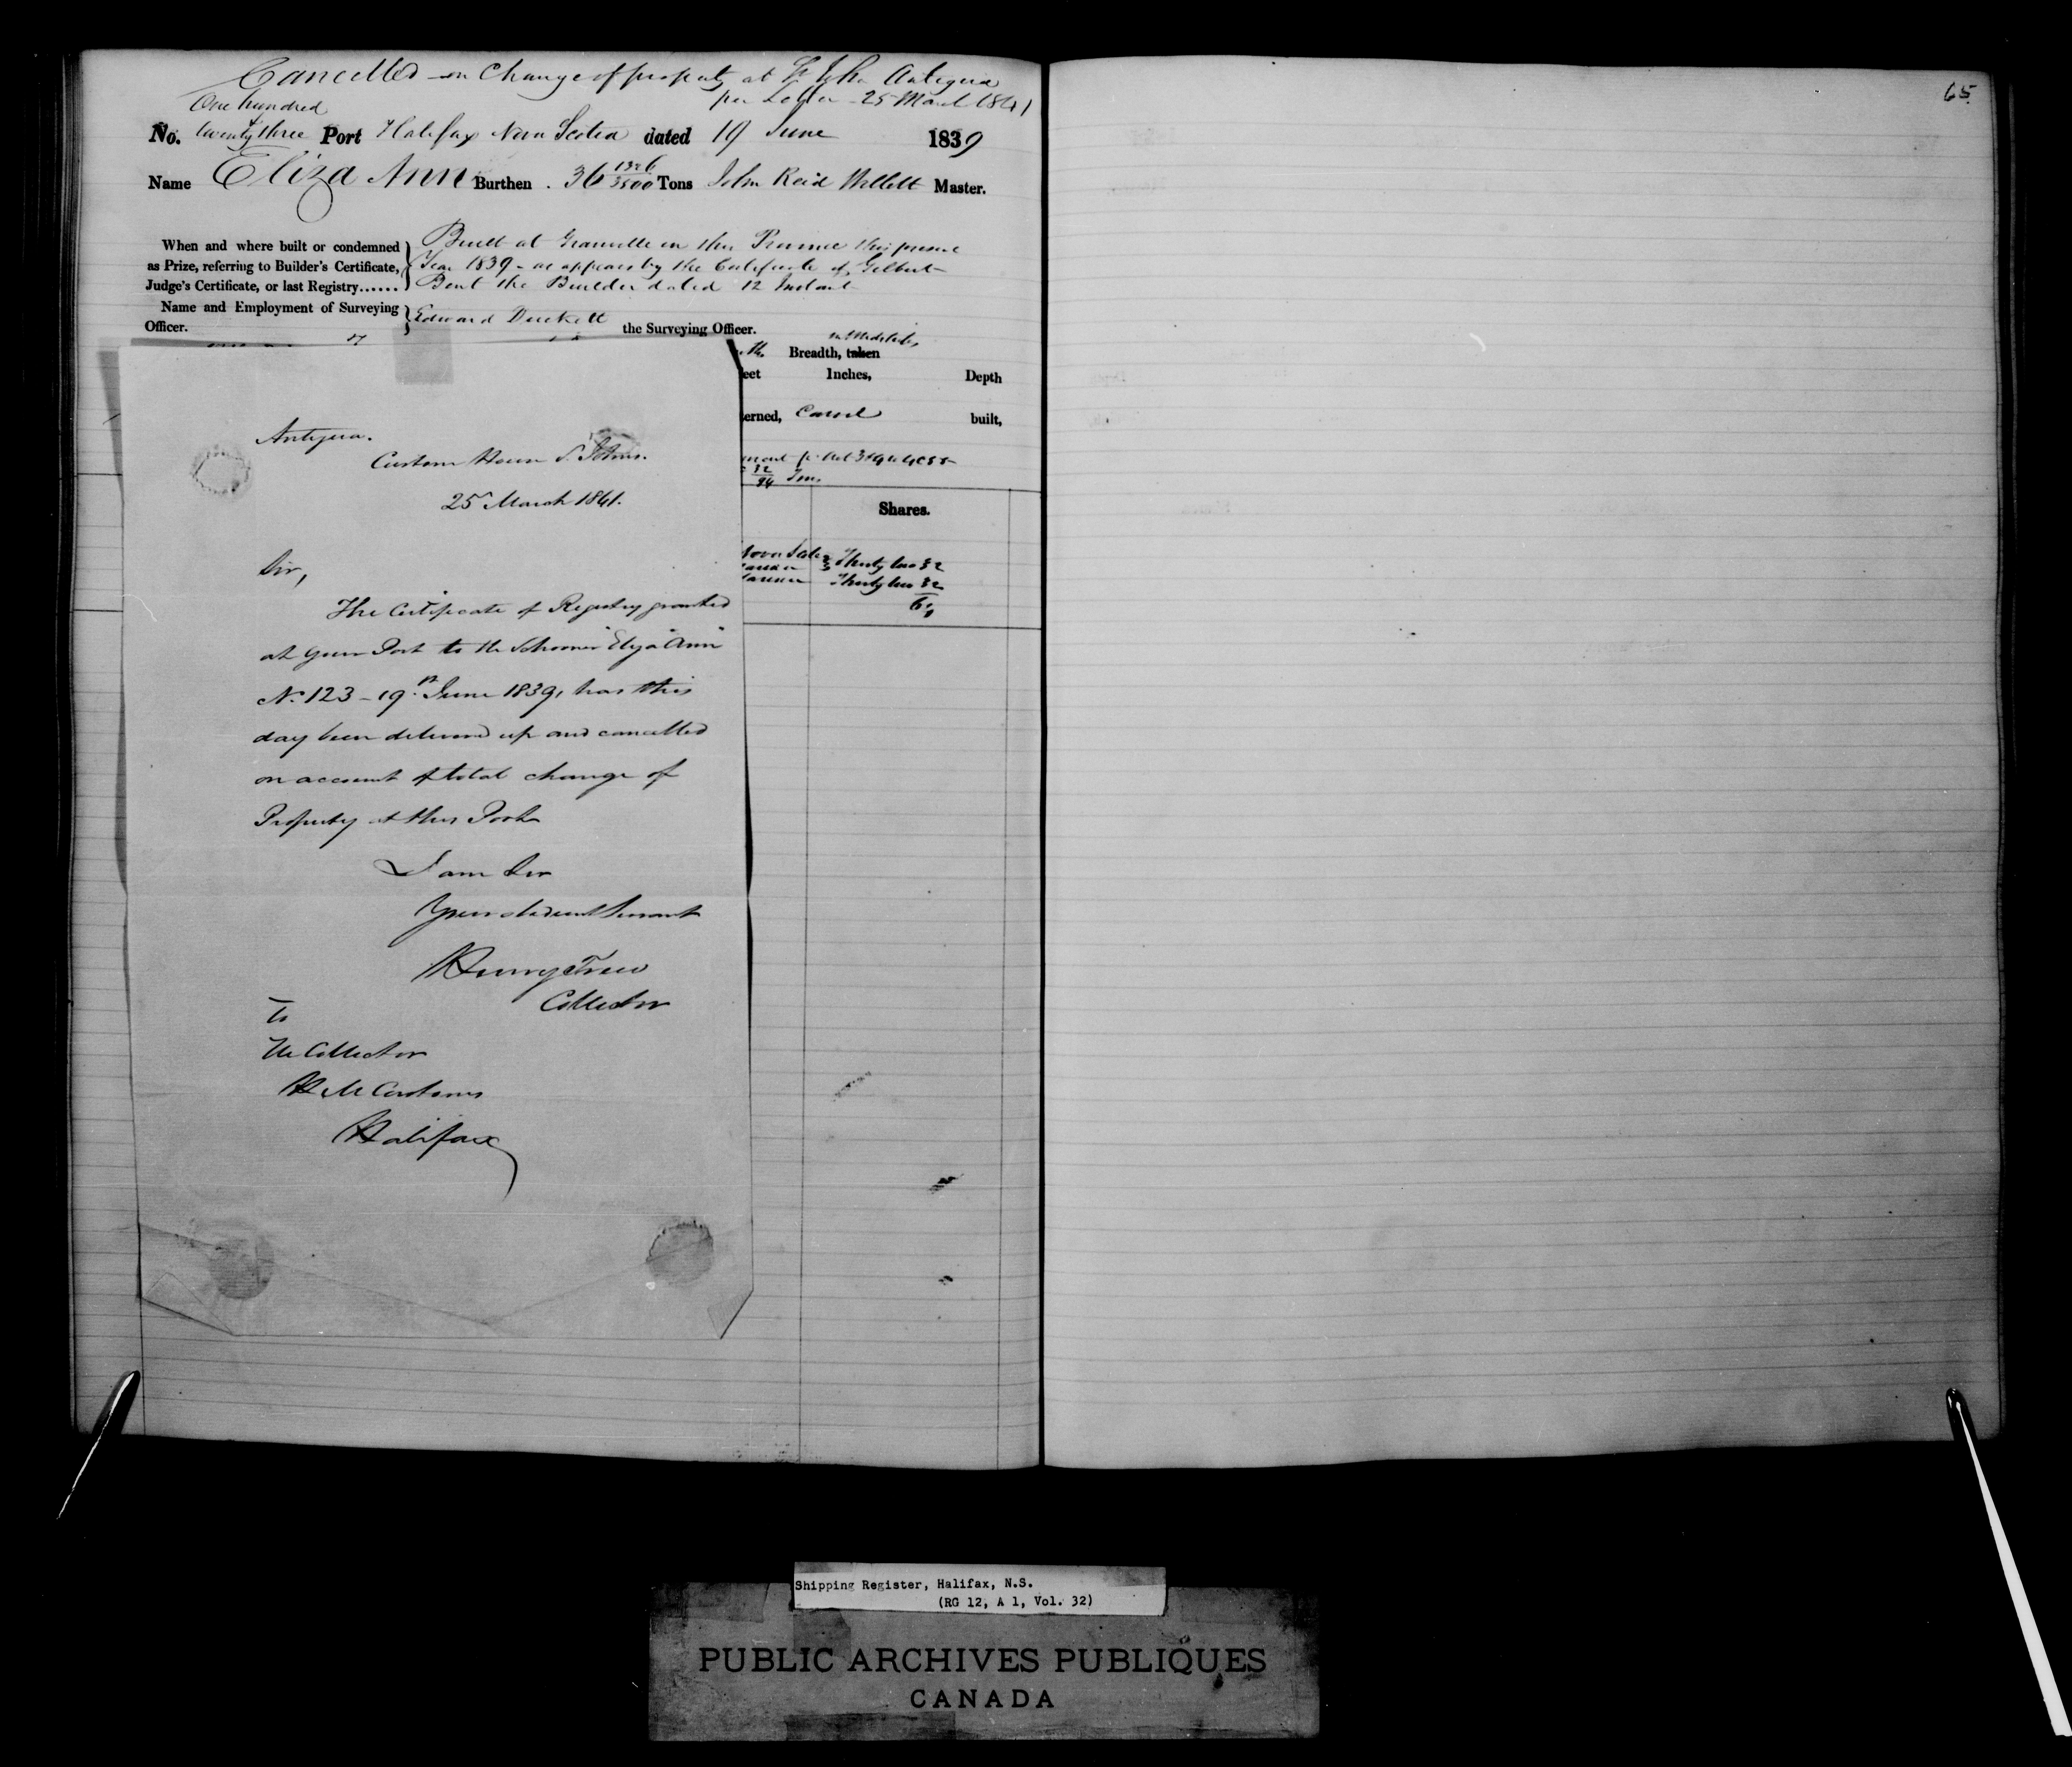 Cancelled on Change of property at St John Antigua
per Letter 25 March 1841
One hundred
No. twenty three Port Halifax Nova Scotia dated 19 June 1839
Name Eliza Ann Burthen 36 1326/3500 Tons John Reid Willett Master.
When and where built or condemned
as Prize, referring to Builder's Certificate,
Judge's Certificate, or last Registry......
Built at Granville in this Province this present
Year 1839 - as appears by the Certificate of Gilbert
Bent the Builder dated 12 Instant
Name and Employment of Surveying
Officer.
Edward Duckett the Surveying Officer.
in Midships
Breadth, taken
eet Inches, Depth
terned, Carvel built,
Shares.
Nova Scotia Thirty two 32
Thirty two 32
64
Antigua.
Custom House St Johns.
25 March 1841.
Sir,
The Certificate of Registry granted
at your Port to the Schooner "Eliza Ann"
No. 123 - 19th June 1839, has this
day been delivered up and cancelled
on account of total change of
Property at this Port
I am Sir
Your obedient Servant
Henry Trew
Collector
To
The Collector
H M Customs
Halifax
65
Shipping Register, Halifax, N.S.
(RG 12, A 1, Vol. 32)
PUBLIC ARCHIVES PUBLIQUES
CANADA